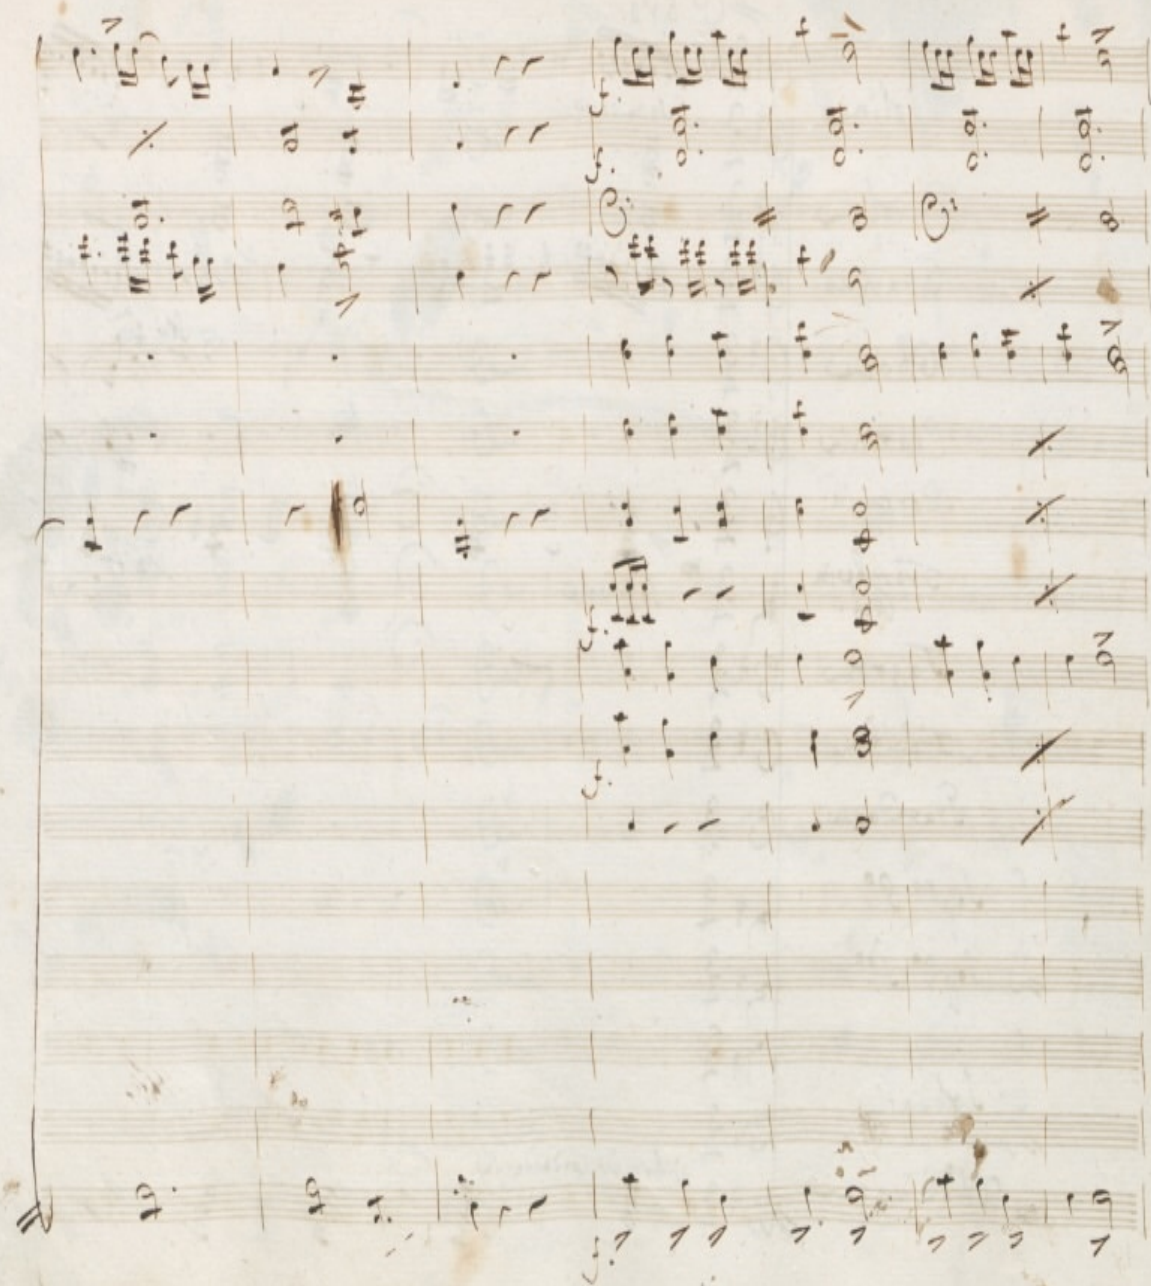 f.
f.
f.
f.
f.